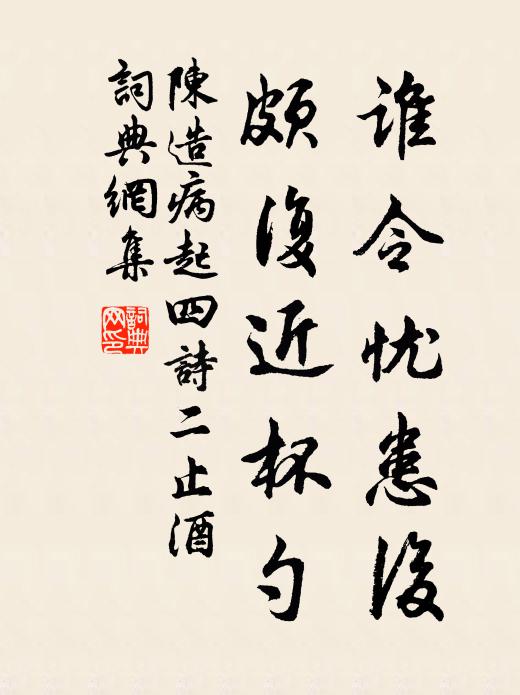 誰令忧患後
頗復近杯勺
陳造病起四詩二止酒
詞典網集
詞典网印